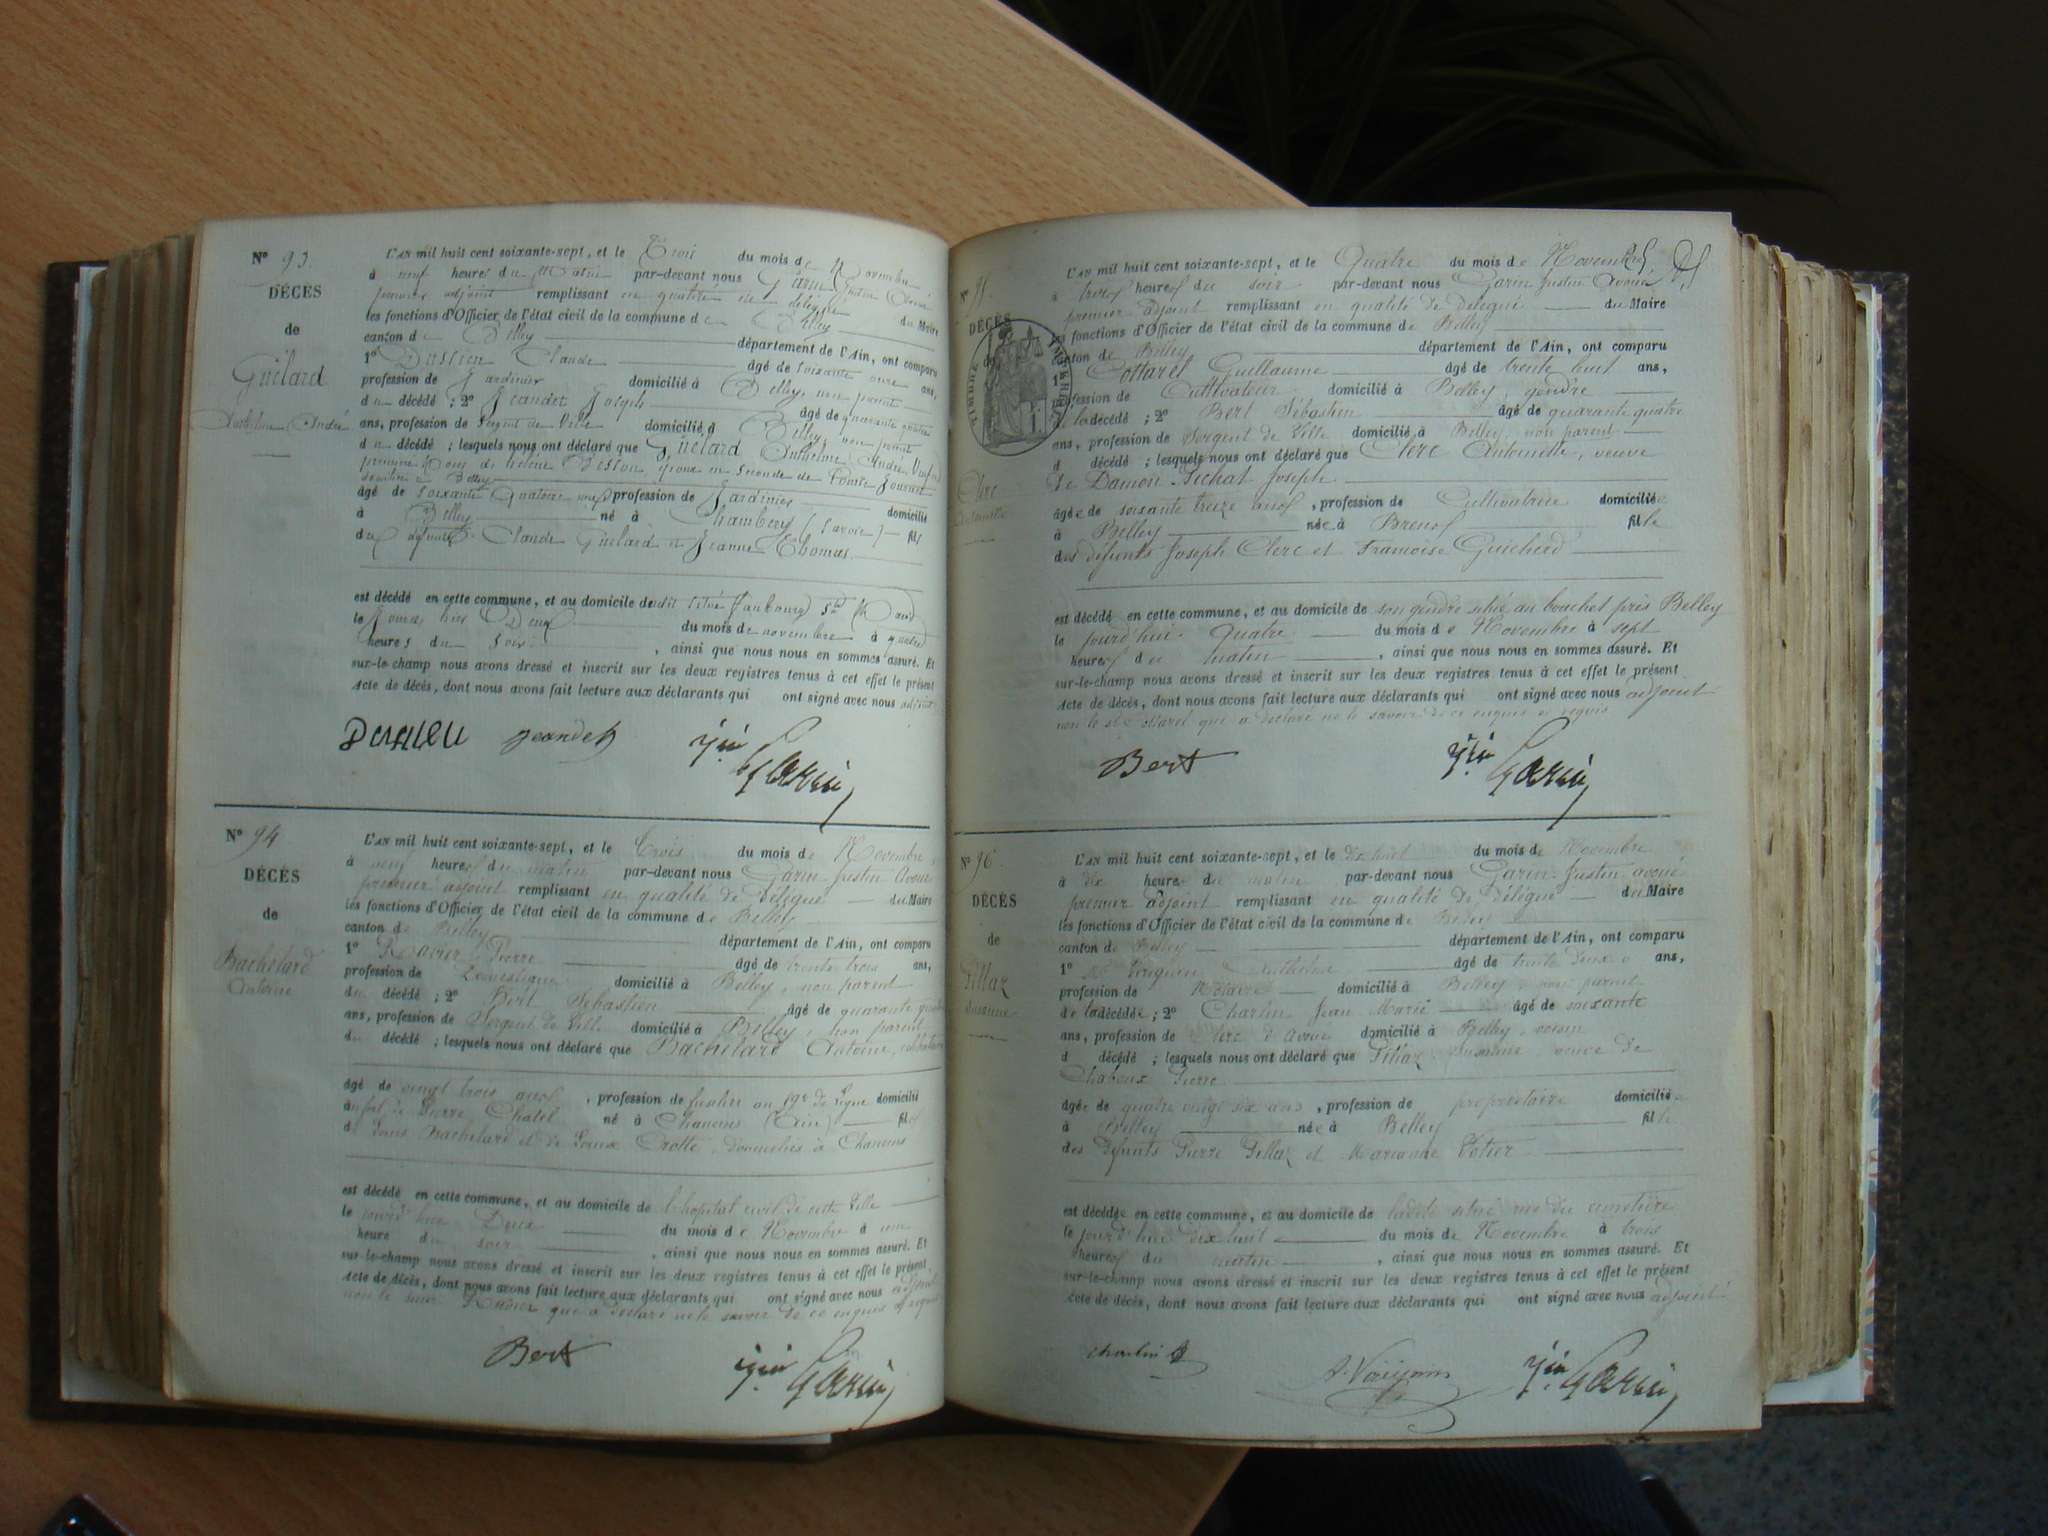 N° 93.
DÉCÈS
de
Guelard
Anthelme André
L'AN mil huit cent soixante-sept, et le Trois du mois de Novembre
à neuf heures du Matin par-devant nous Garin Justin Avoué
premier adjoint remplissant en qualité de délégué du Maire
les fonctions d'Officier de l'état civil de la commune de Belley
canton de Belley département de l'Ain, ont comparu
1° Claude âgé de soixante onze ans,
profession de Jardinier domicilié à Belley, non parent
du décédé ; 2° Jeandet Joseph âgé de quarante quatre
ans, profession de Sergent de Ville domicilié à Belley, non parent
du décédé ; lesquels nous ont déclaré que Guelard Anthelme André
premières Noces de hélène époux en seconde de
domicilié à Belley
âgé de soixante quatorze ans profession de Jardinier domicilié
à Belley né à Chambéry (Savoie) fils
des défunts Claude Guelard et Jeanne Thomas.
est décédé en cette commune, et au domicile dudit situé faubourg St
le jour d'hier Deux du mois de novembre à quatre
heures du soir , ainsi que nous nous en sommes assuré. Et
sur-le-champ nous avons dressé et inscrit sur les deux registres tenus à cet effet le présent
Acte de décès, dont nous avons fait lecture aux déclarants qui ont signé avec nous adjoint
jeandet Jin Garin
N° 94
DÉCÈS
de
Bachelard
Antoine
L'AN mil huit cent soixante-sept, et le Trois du mois de Novembre
à neuf heures du matin par-devant nous Garin Justin Avoué
premier adjoint remplissant en qualité de Délégué du Maire
les fonctions d'Officier de l'état civil de la commune de Belley
canton de Belley département de l'Ain, ont comparu
1° Pierre âgé de trente trois ans,
profession de Domestique domicilié à Belley, non parent
du décédé ; 2° Bert Sébastien âgé de quarante quatre
ans, profession de Sergent de Ville domicilié à Belley, non parent
du décédé ; lesquels nous ont déclaré que Bachelard Antoine, célibataire
âgé de vingt trois ans , profession de fusilier au de Ligne domicilié
au fort de Pierre Chatel né à Chanins (Ain) fils
de Louis Bachelard et de domiciliés à Chanins
est décédé en cette commune, et au domicile de l'hopital civil de cette Ville
le jour d'hier Deux du mois de Novembre à une
heure du soir , ainsi que nous nous en sommes assuré. Et
sur-le-champ nous avons dressé et inscrit sur les deux registres tenus à cet effet le présent
Acte de décès, dont nous avons fait lecture aux déclarants qui ont signé avec nous adjoint
non le sieur que a déclaré ne le savoir de ce enquis et requis
Bert Jin Garin
N° 95
DÉCÈS
de
TIMBRE IMPÉRIAL
Clerc
Antoinette
L'AN mil huit cent soixante-sept, et le Quatre du mois de Novembre
à trois heures du soir par-devant nous Garin Justin Avoué
premier adjoint remplissant en qualité de Délégué du Maire
les fonctions d'Officier de l'état civil de la commune de Belley
canton de Belley département de l'Ain, ont comparu
1° Cottarel Guillaume âgé de trente huit ans,
profession de Cultivateur domicilié à Belley, gendre
de la décédé ; 2° Bert Sébastien âgé de quarante quatre
ans, profession de Sergent de Ville domicilié à Belley, non parent
d décédé ; lesquels nous ont déclaré que Clerc Antoinette, veuve
de Damon Pichat Joseph
âgée de soixante treize ans , profession de Cultivatrice domiciliée
à Belley née à Brens fille
des défunts Joseph Clerc et Françoise Guicherd
est décédé en cette commune, et au domicile de son gendre situé au bouchet près Belley
le jourd'hui Quatre du mois de Novembre à sept
heures du matin , ainsi que nous nous en sommes assuré. Et
sur-le-champ nous avons dressé et inscrit sur les deux registres tenus à cet effet le présent
Acte de décès, dont nous avons fait lecture aux déclarants qui ont signé avec nous adjoint
non le Sr Cottarel qui a déclaré ne le savoir de ce enquis et requis
Bert Jin Garin
N° 96
DÉCÈS
de
Pillaz
Susanne
L'AN mil huit cent soixante-sept, et le dix huit du mois de Novembre
à dix heures du matin par-devant nous Garin Justin avoué
premier adjoint remplissant en qualité de Délégué du Maire
les fonctions d'Officier de l'état civil de la commune de Belley
canton de Belley département de l'Ain, ont comparu
1° Anthelme âgé de trente deux ans,
profession de Notaire domicilié à Belley, non parent
de la décédée ; 2° Charlin Jean Marie âgé de soixante
ans, profession de Clerc d'Avoué domicilié à Belley, voisin
d décédé ; lesquels nous ont déclaré que Pillaz Susanne veuve de
Chaboux Pierre
âgée de quatre vingt six ans , profession de propriétaire domiciliée
à Belley née à Belley fille
des Défunts Pierre Pillaz et Marianne
est décédée en cette commune, et au domicile de ladite situé rue du cimetière
le jourd'hui dix huit du mois de Novembre à trois
heures du matin , ainsi que nous nous en sommes assuré. Et
sur-le-champ nous avons dressé et inscrit sur les deux registres tenus à cet effet le présent
Acte de décès, dont nous avons fait lecture aux déclarants qui ont signé avec nous adjoint
charlin Jin Garin